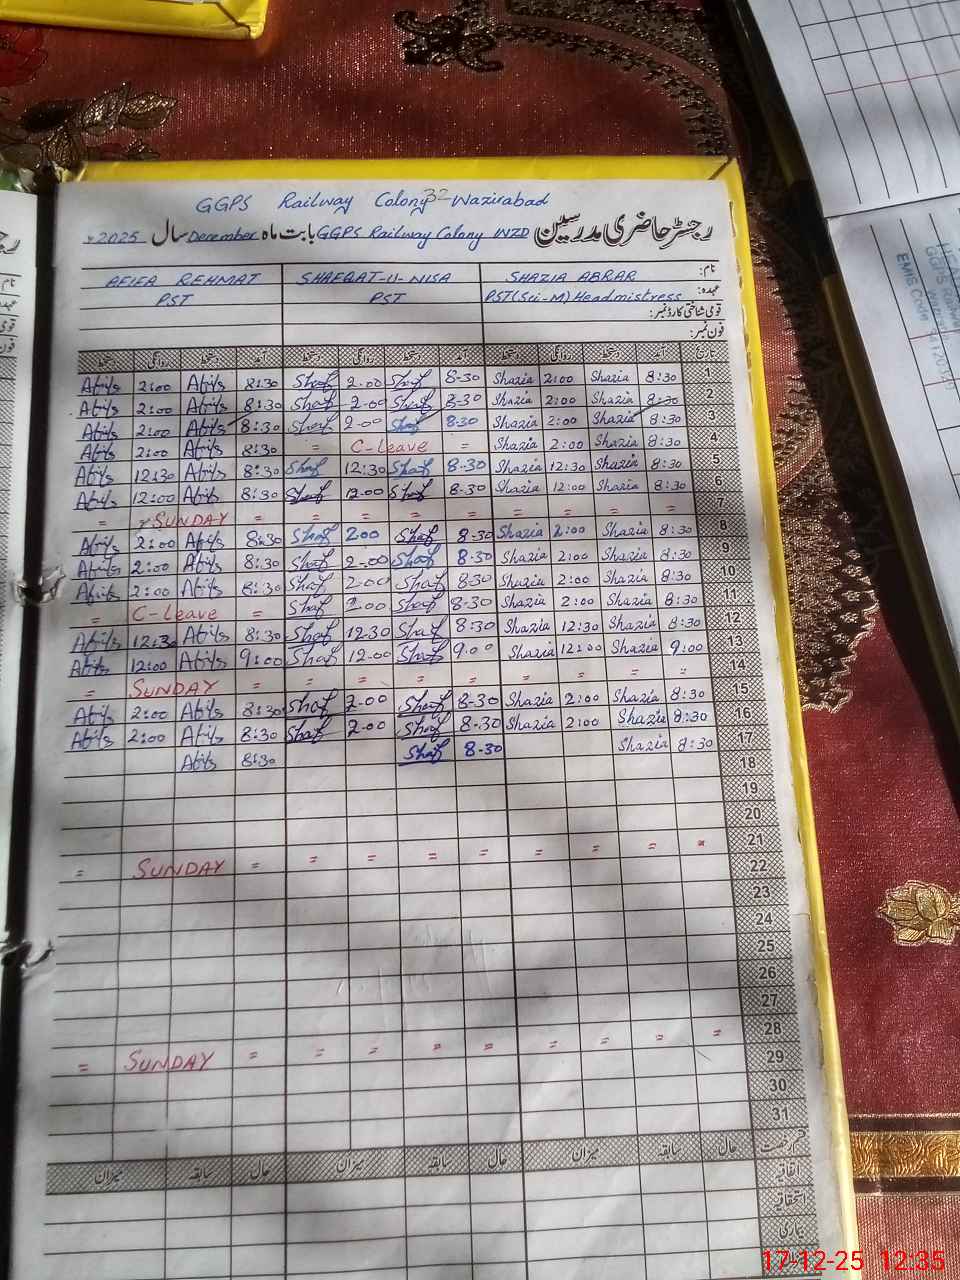 GGPS Railway Colony 32 Wazirabad
رجسٹر حاضری مدرسین GGPS Railway Colony WZD بابت ماہ December سال 2025
نام: SHAZIA ABRAR SHAFQAT-U-NISA AFIFA REHMAT
عہدہ: PST(Sci-M) Headmistress PST PST
قومی شناختی کارڈ نمبر:
فون نمبر:
تاریخ آمد دستخط روانگی دستخط آمد دستخط روانگی دستخط آمد دستخط روانگی دستخط
1 8:30 Shazia 2:00 Shazia 8-30 Shaf 2.00 Shaf 8:30 Afifa 2:00 Afifa
2 8:30 Shazia 2:00 Shazia 8-30 Shaf 2-00 Shaf 8:30 Afifa 2:00 Afifa
3 8:30 Shazia 2:00 Shazia 8.30 Shaf 2-00 Shaf 8:30 Afifa 2:00 Afifa
4 8:30 Shazia 2:00 Shazia C-Leave = 8:30 Afifa 2:00 Afifa
5 8:30 Shazia 12:30 Shazia 8-30 Shaf 12:30 Shaf 8:30 Afifa 12:30 Afifa
6 8:30 Shazia 12:00 Shazia 8-30 Shaf 12.00 Shaf 8:30 Afifa 12:00 Afifa
7 = = = = = = = = = SUNDAY =
8 8:30 Shazia 2:00 Shazia 8-30 Shaf 2.00 Shaf 8:30 Afifa 2:00 Afifa
9 8:30 Shazia 2:00 Shazia 8-30 Shaf 2-00 Shaf 8:30 Afifa 2:00 Afifa
10 8:30 Shazia 2:00 Shazia 8-30 Shaf 2-00 Shaf 8:30 Afifa 2:00 Afifa
11 8:30 Shazia 2:00 Shazia 8-30 Shaf 2.00 Shaf = C-Leave =
12 8:30 Shazia 12:30 Shazia 8-30 Shaf 12.30 Shaf 8:30 Afifa 12:30 Afifa
13 9:00 Shazia 12:00 Shazia 9.00 Shaf 12.00 Shaf 9:00 Afifa 12:00 Afifa
14 = = = = = = = = = SUNDAY =
15 8:30 Shazia 2:00 Shazia 8-30 Shaf 2.00 Shaf 8:30 Afifa 2:00 Afifa
16 8:30 Shazia 2:00 Shazia 8.30 Shaf 2.00 Shaf 8:30 Afifa 2:00 Afifa
17 8:30 Shazia 8-30 Shaf 8:30 Afifa
18
19
20
21 = = = = = = = = = SUNDAY =
22
23
24
25
26
27
28 = = = = = = = = = SUNDAY =
29
30
31
قسم رخصت حال سابقہ میزان حال سابقہ میزان حال سابقہ میزان
اتفاقیہ
استحقاقیہ
بیماری
EMIS Code
17-12-25 12:35